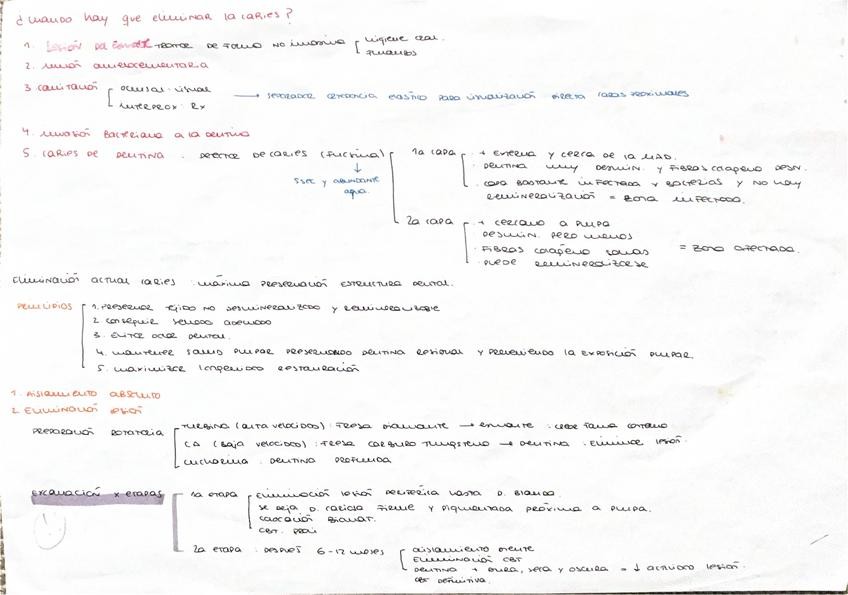 ¿Cuando hay que eliminar la caries?
1. Lesión de esmalte tratar de forma no invasiva higiene oral
fluoruros
2. unión amelocementaria
3. cavitación oclusal: visual
interprox: Rx
→ separador ortodoncia elástico para visualización directa caras proximales
4. invasión bacteriana a la dentina
5. caries de dentina: detector de caries (fucsina)
↓
5 sec y abundante
agua.
1a capa + externa y cerca de la UAD.
· Dentina muy desmin. y fibras colágeno desn.
· capa bastante infectada x bacterias y no hay
remineralización = zona infectada.
2a capa · + cercana a pulpa
desmin. pero menos
· Fibras colágeno sanas
· puede remineralizarse
= zona afectada.
Eliminación actual caries: máxima preservación estructura dental.
principios 1. preservar tejido no desmineralizado y remineralizable
2. conseguir sellado adecuado
3. evitar dolor dental.
4. mantener salud pulpar preservando dentina residual y previniendo la exposición pulpar.
5. maximizar longevidad restauración
1. Aislamiento absoluto
2. Eliminación lesión
preparación rotatoria turbina (alta velocidad): fresa diamante → esmalte:
CA (baja velocidad): fresa carburo tungsteno → dentina: eliminar lesión.
cucharilla: dentina profunda
excavación x etapas 1a etapa Eliminación lesión periférica hasta D. blanda.
se deja D. cariada firme y pigmentada próxima a pulpa.
2a etapa: después 6-12 meses aislamiento diente
Eliminación OBT
Dentina + dura, seca y oscura = ↓ actividad lesión.
OBT definitiva.